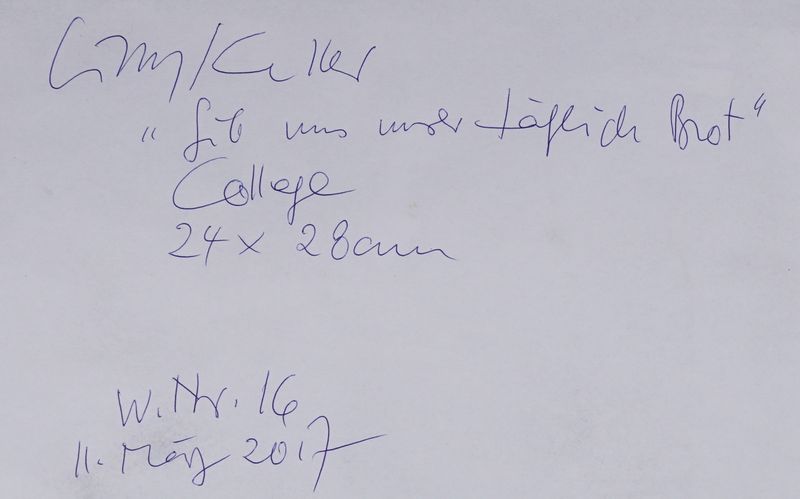 Lilly Keller
„Gib uns unser täglich Brot“
Collage
24 x 28cm
W.Nr. 16
11. März 2017